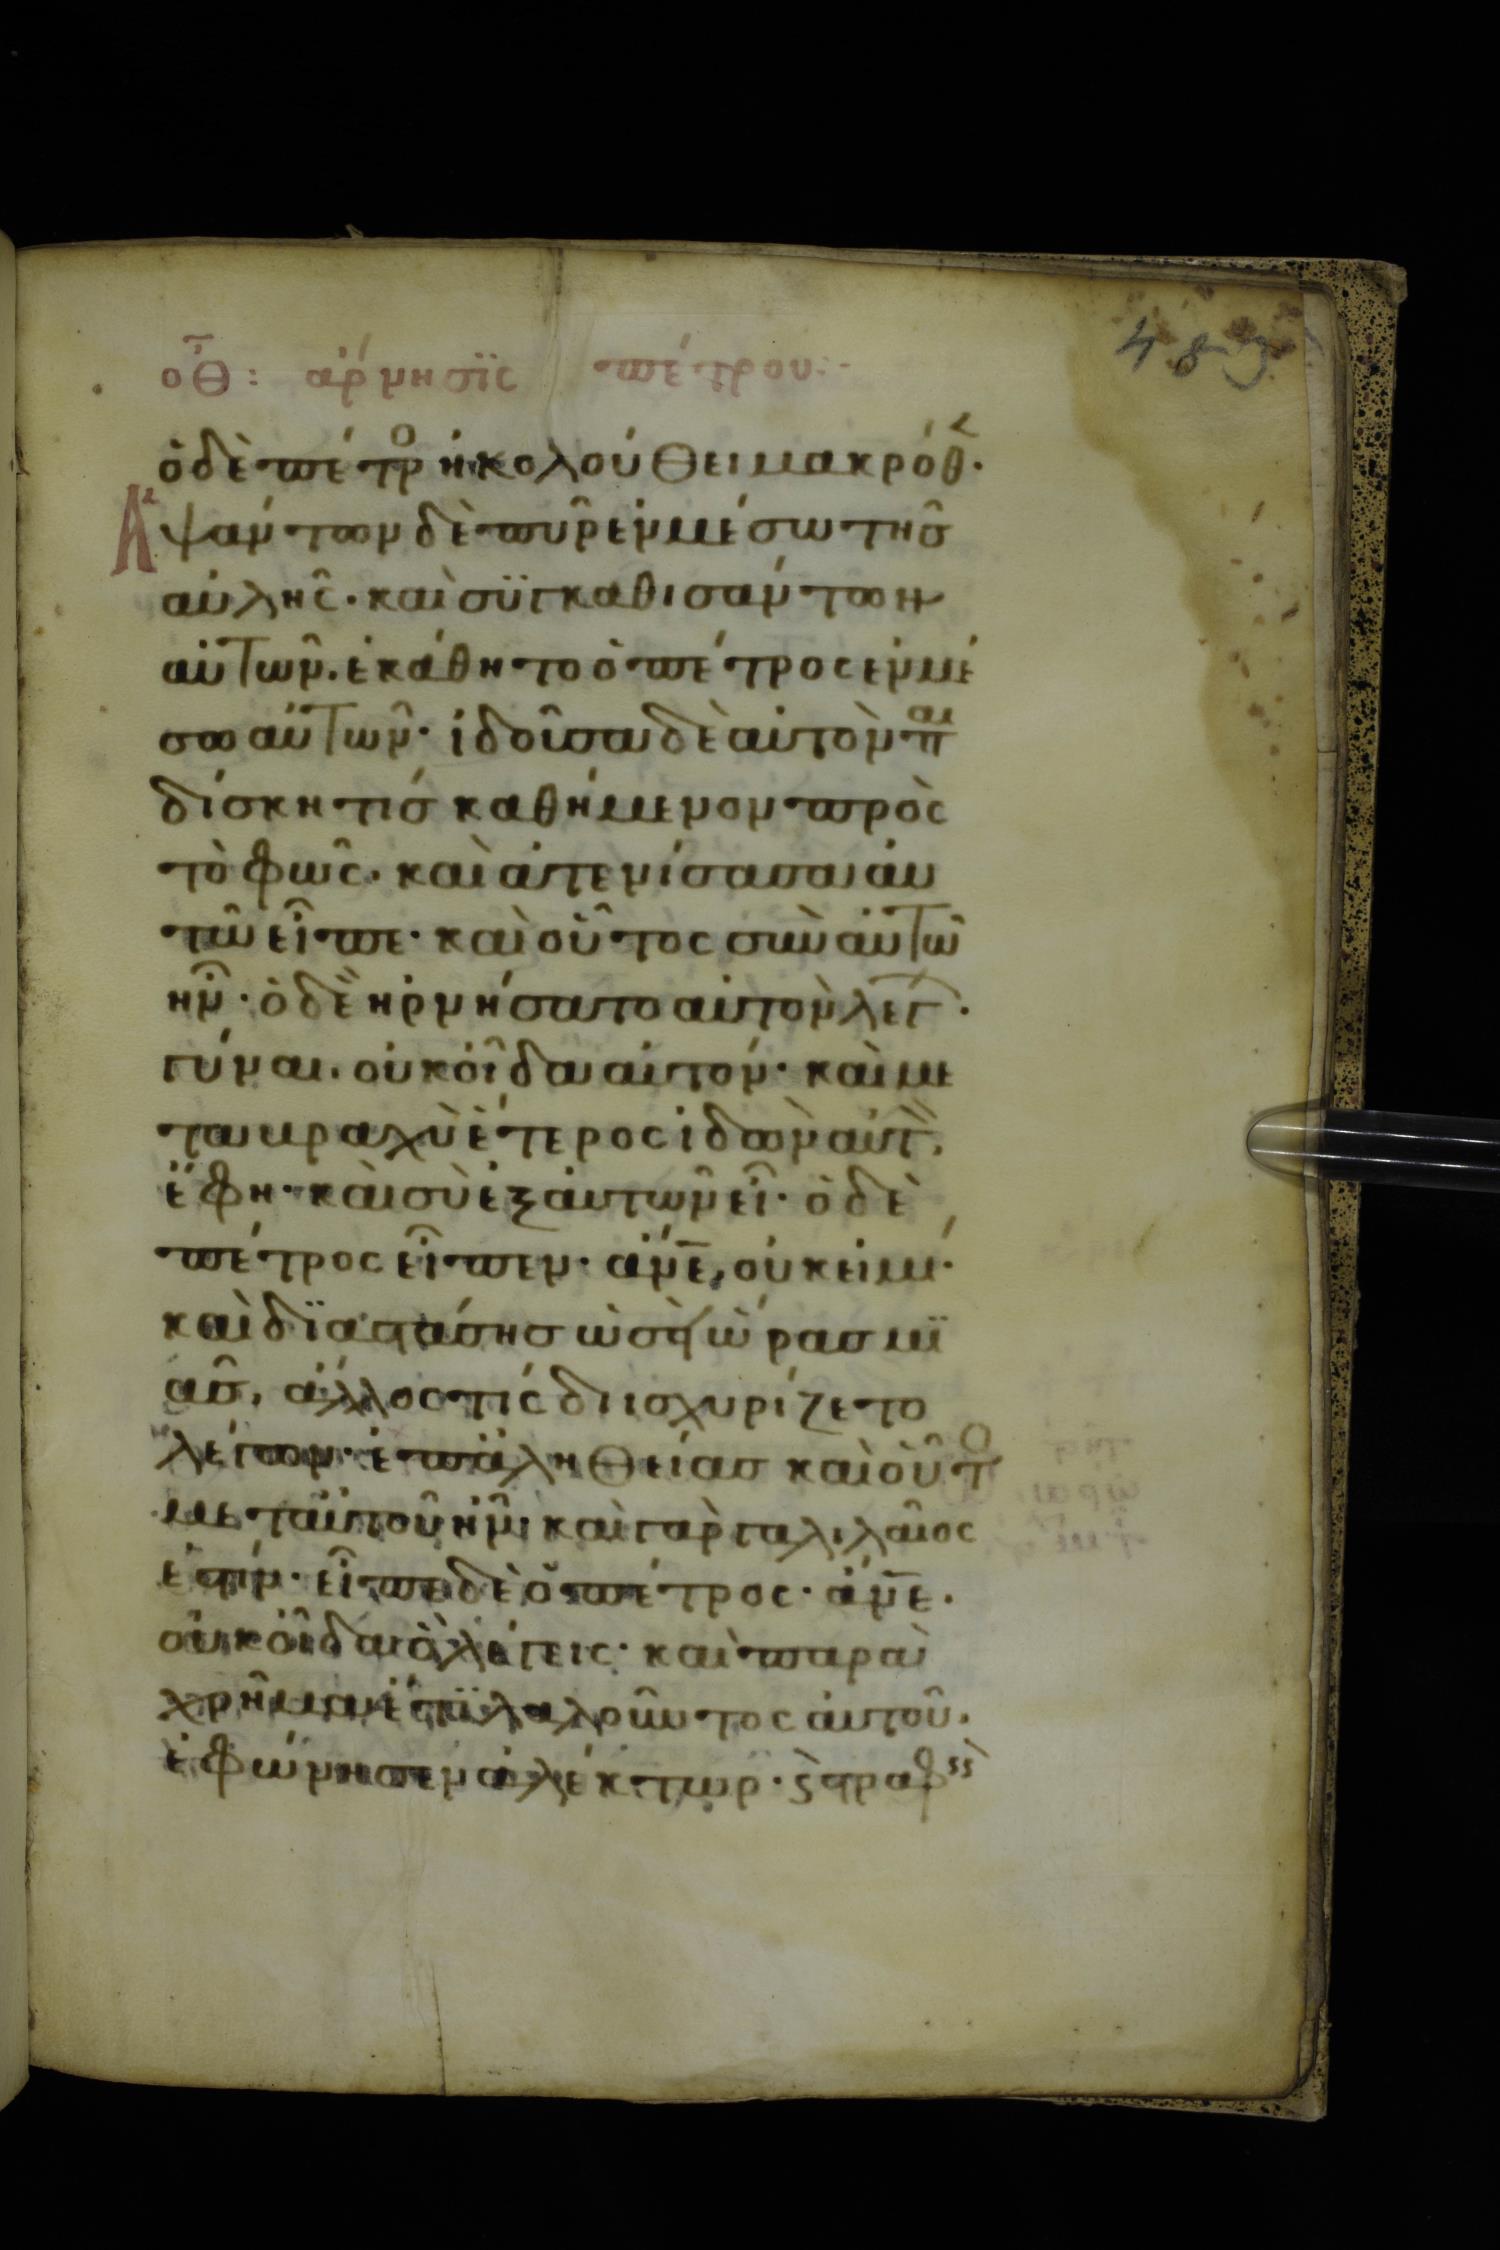 483
οθ: ἄρνησϊς πέτρου:-
ὁ δὲ πέτρο ἠκολούθει μακρόθ·
Ἁψάντων δὲ πῦρ ἐν μέσω τῆσ
αὐλῆς· καὶ σϋγκαθισάντων
αὐτῶν. ἐκάθητο ὁ πέτρος ἐν μέ
σω αὐτῶν· ἰδοῦσα δὲ αὐτὸν παι
δίσκη τίσ καθήμενον πρὸς
τὸ φῶς. καὶ ἀτενίσασα αὐ
τῶ εἶπε· καὶ οὗτος σὺν αὐτῶ
ἦν· ὁ δὲ ἠρνήσατο αὐτὸν λεγ·
γύναι. οὐκ οἶδα αὐτόν· καὶ με
τα βραχὺ ἕτερος ἰδὼν αὐτ.
ἔφη· καὶ σὺ ἐξ αὐτῶν εἶ· ὁ δὲ
πέτρος εἶπεν· ἄνε, οὐκ εἰμί·
καὶ δϊαστάσησ ὡσὴ ὥρασ μϊ
ᾶσ, ἄλλος τίς διισχυρίζετο
λέγων· ἐπ ἀληθείασ καὶ οὗτο
μετ αὐτοῦ ἦν· καὶ γὰρ γαλιλαῖος
ἐστίν· εἶπε δὲ ὁ πέτρος· ἄνε.
οὐκ οἶδα ὃ λέγεις· καὶ παρα
χρῆμα ἔτϊ λαλοῦντος αὐτοῦ.
ἐφώνησεν ἀλέκτωρ· ϛ στραφϛ